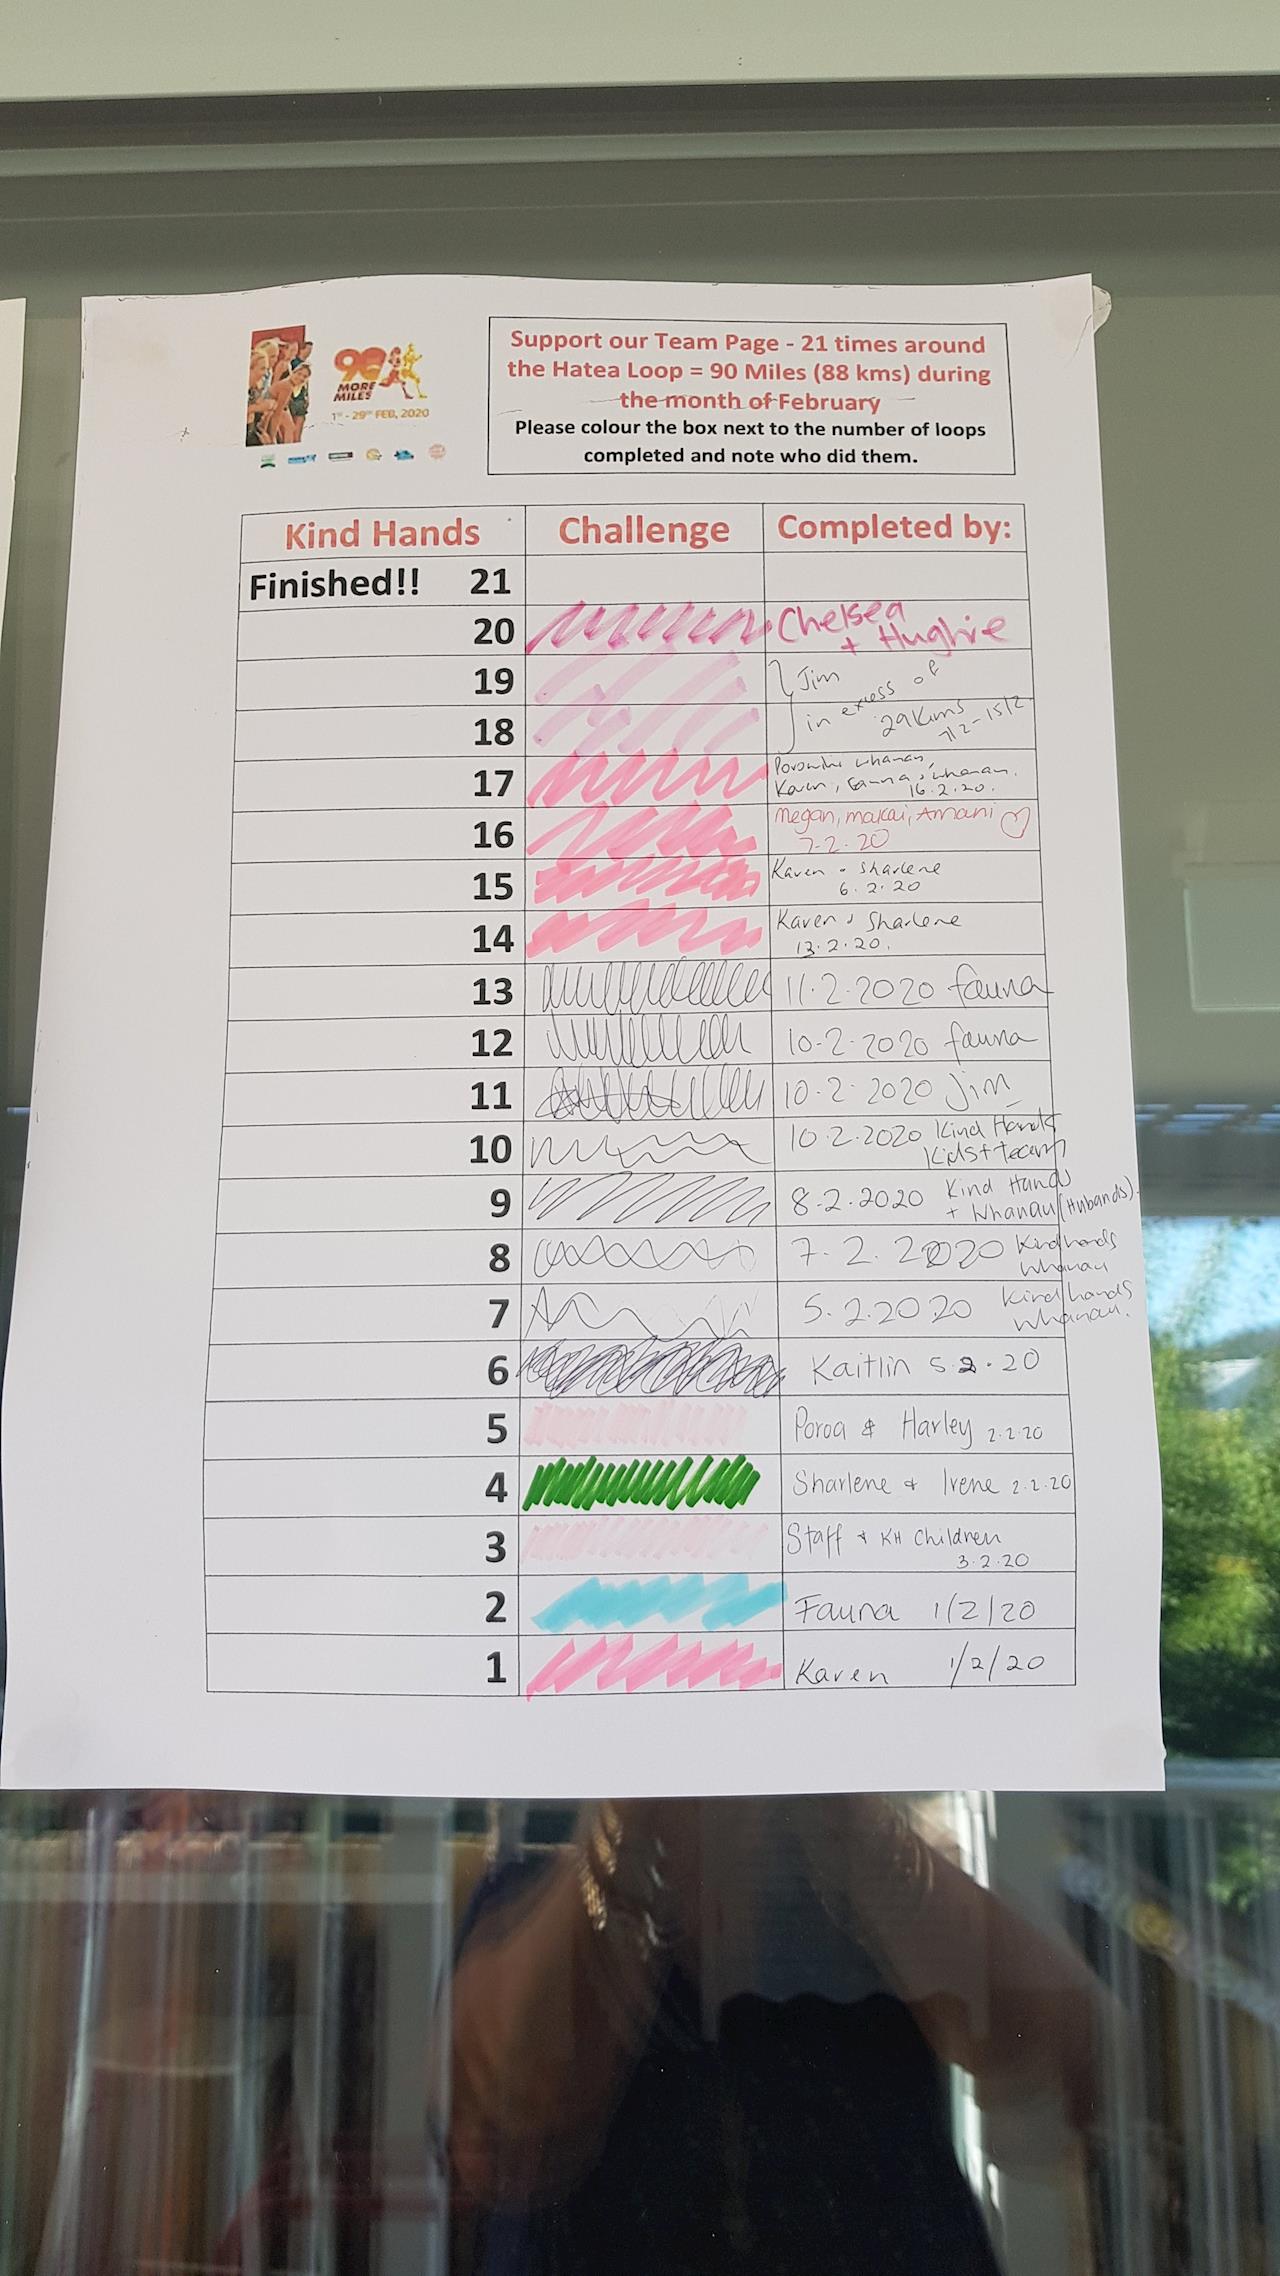 90
MORE
MILES
1ST - 29TH FEB, 2020
Support our Team Page - 21 times around
the Hatea Loop = 90 Miles (88 kms) during
the month of February
Please colour the box next to the number of loops
completed and note who did them.
Kind Hands Challenge Completed by:
Finished!! 21
20 Chelsea
+ Hughie
19 Jim
in excess of
18 29kms
7/2-15/2
17 whanau,
Karen, whanau.
16.2.20.
16 megan, makai, Amani ♡
7-2-20
15 Karen & Sharlene
6.2.20
14 Karen & Sharlene
13.2.20.
13 11.2.2020 fauna
12 10-2-2020 fauna
11 10-2-2020 Jim
10 10.2.2020 Kind Hands
Kids + team
9 8.2.2020 Kind Hands
+ Whanau (Hubands).
8 7.2.2020 Kind hands
whanau
7 5.2.2020 Kind hands
whanau.
6 Kaitlin 5.2.20
5 Poroa & Harley 2.2.20
4 Sharlene + Irene 2.2.20
3 Staff + KH Children
3.2.20
2 Fauna 1/2/20
1 Karen 1/2/20